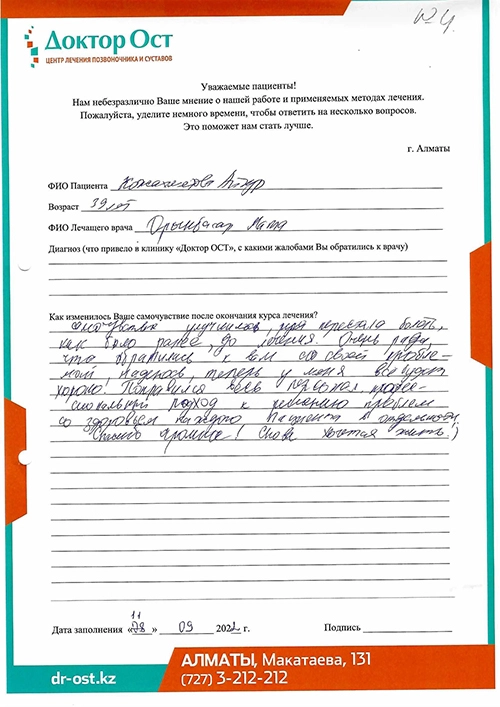 № 4.
Доктор Ост
ЦЕНТР ЛЕЧЕНИЯ ПОЗВОНОЧНИКА И СУСТАВОВ
Уважаемые пациенты!
Нам небезразлично Ваше мнение о нашей работе и применяемых методах лечения.
Пожалуйста, уделите немного времени, чтобы ответить на несколько вопросов.
Это поможет нам стать лучше.
г. Алматы
ФИО Пациента
Возраст 39 лет
ФИО Лечащего врача Орынбасар
Диагноз (что привело в клинику «Доктор ОСТ», с какими жалобами Вы обратились к врачу)
Как изменилось Ваше самочувствие после окончания курса лечения?
Самочувствие улучшилось, перестала болеть,
как было ранее, до лечения. Очень рада,
что обратились к вам со своей пробле-
мой. Надеюсь, теперь у меня все будет
хорошо! Понравился весь персонал, профес-
сиональный подход к решению проблем
со здоровьем каждого пациента в отдельности,
Спасибо огромное! Снова хочется жить!)
11
Дата заполнения «28» 09 2022 г.
Подпись
АЛМАТЫ, Макатаева, 131
(727) 3-212-212
dr-ost.kz